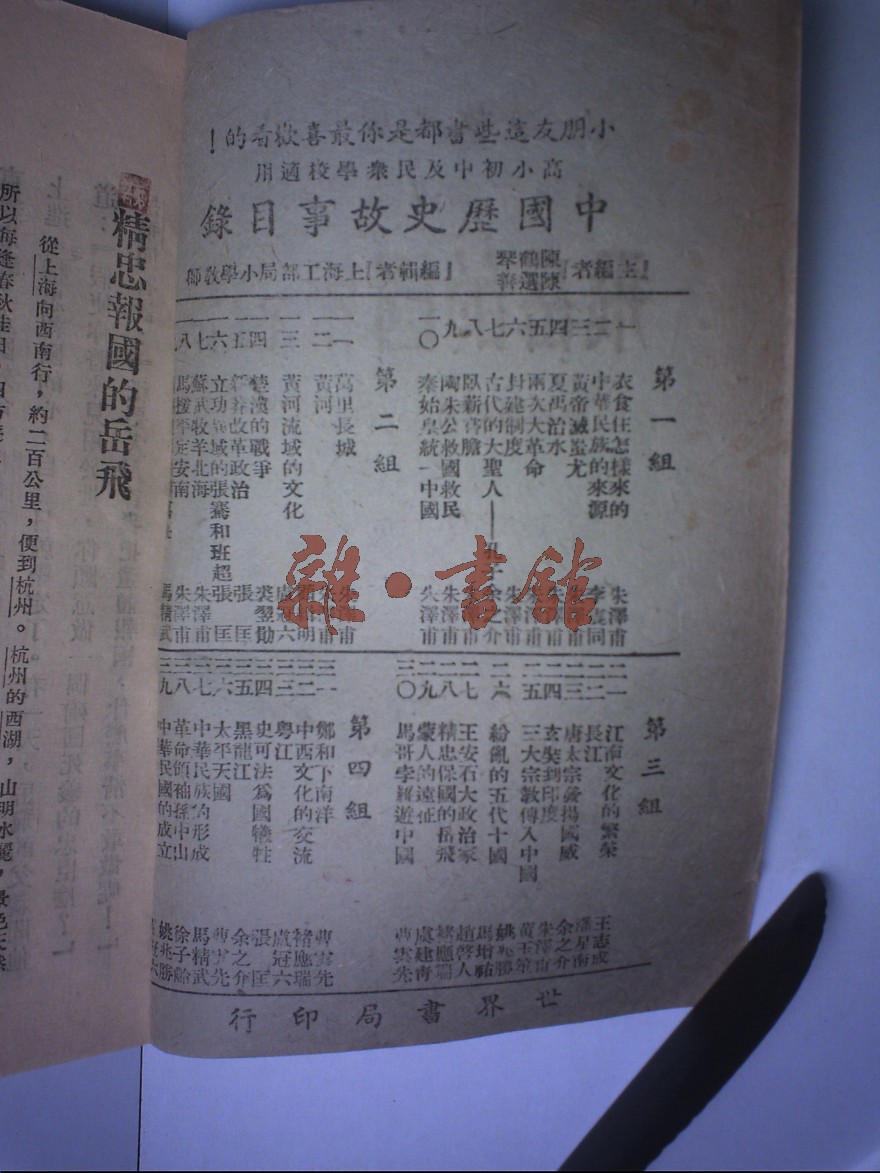 小朋友這些書都是你最喜歡看的！
高小初中及民衆學校適用
中國歷史故事目錄
【主編者】陳鶴琴 陳選善【編輯者】上海工部局小學教師
第一組
一 衣食住怎樣來的 朱澤甫
二 中華民族的來源
三 黃帝滅蚩尤
四 夏禹治水
五 兩次大革命
六 封建制度 朱澤甫
七 古代的大聖人——孔子 余之介
八 臥薪嘗膽 朱澤甫
九 陶朱公救國救民 朱澤甫
一〇 秦始皇統一中國 朱澤甫
第二組
一一 萬里長城 朱澤甫
一二 黃河
一三 黃河流域的文化 盧冠六
一四 楚漢的戰爭 裘翌勛
一五 王莽改革政治 張匡
一六 立功異域的張騫和班超 張匡
一七 蘇武牧羊北海 朱澤甫
一八 馬援平定安南 馬精武
第三組
二一 江南文化的繁榮 王志成
二二 長江 潘星南
二三 唐太宗發揚國威 余之介
二四 玄奘到印度 朱澤甫
二五 三大宗教傳入中國
二六 紛亂的五代十國 姚兆勝
二七 王安石大政治家 趙啓人
二八 精忠保國的岳飛 褚應瑞
二九 蒙人的遠征 虞建青
三〇 馬哥孛羅遊中國 曹雲先
第四組
三一 鄭和下南洋 曹雲先
三二 中西文化的交流 褚應瑞
三三 粵江 盧冠六
三四 史可法為國犧牲 張匡
三五 黑龍江 余之介
三六 太平天國 曹雲先
三七 中華民族的形成 馬精武
三八 革命領袖孫中山
三九 中華民國的成立 姚兆勝
世界書局印行
精忠報國的岳飛
從上海向西南行，約二百公里，便到杭州。杭州的西湖，山明水麗，景色天然
所以每逢春秋佳日，四方
雜·書館